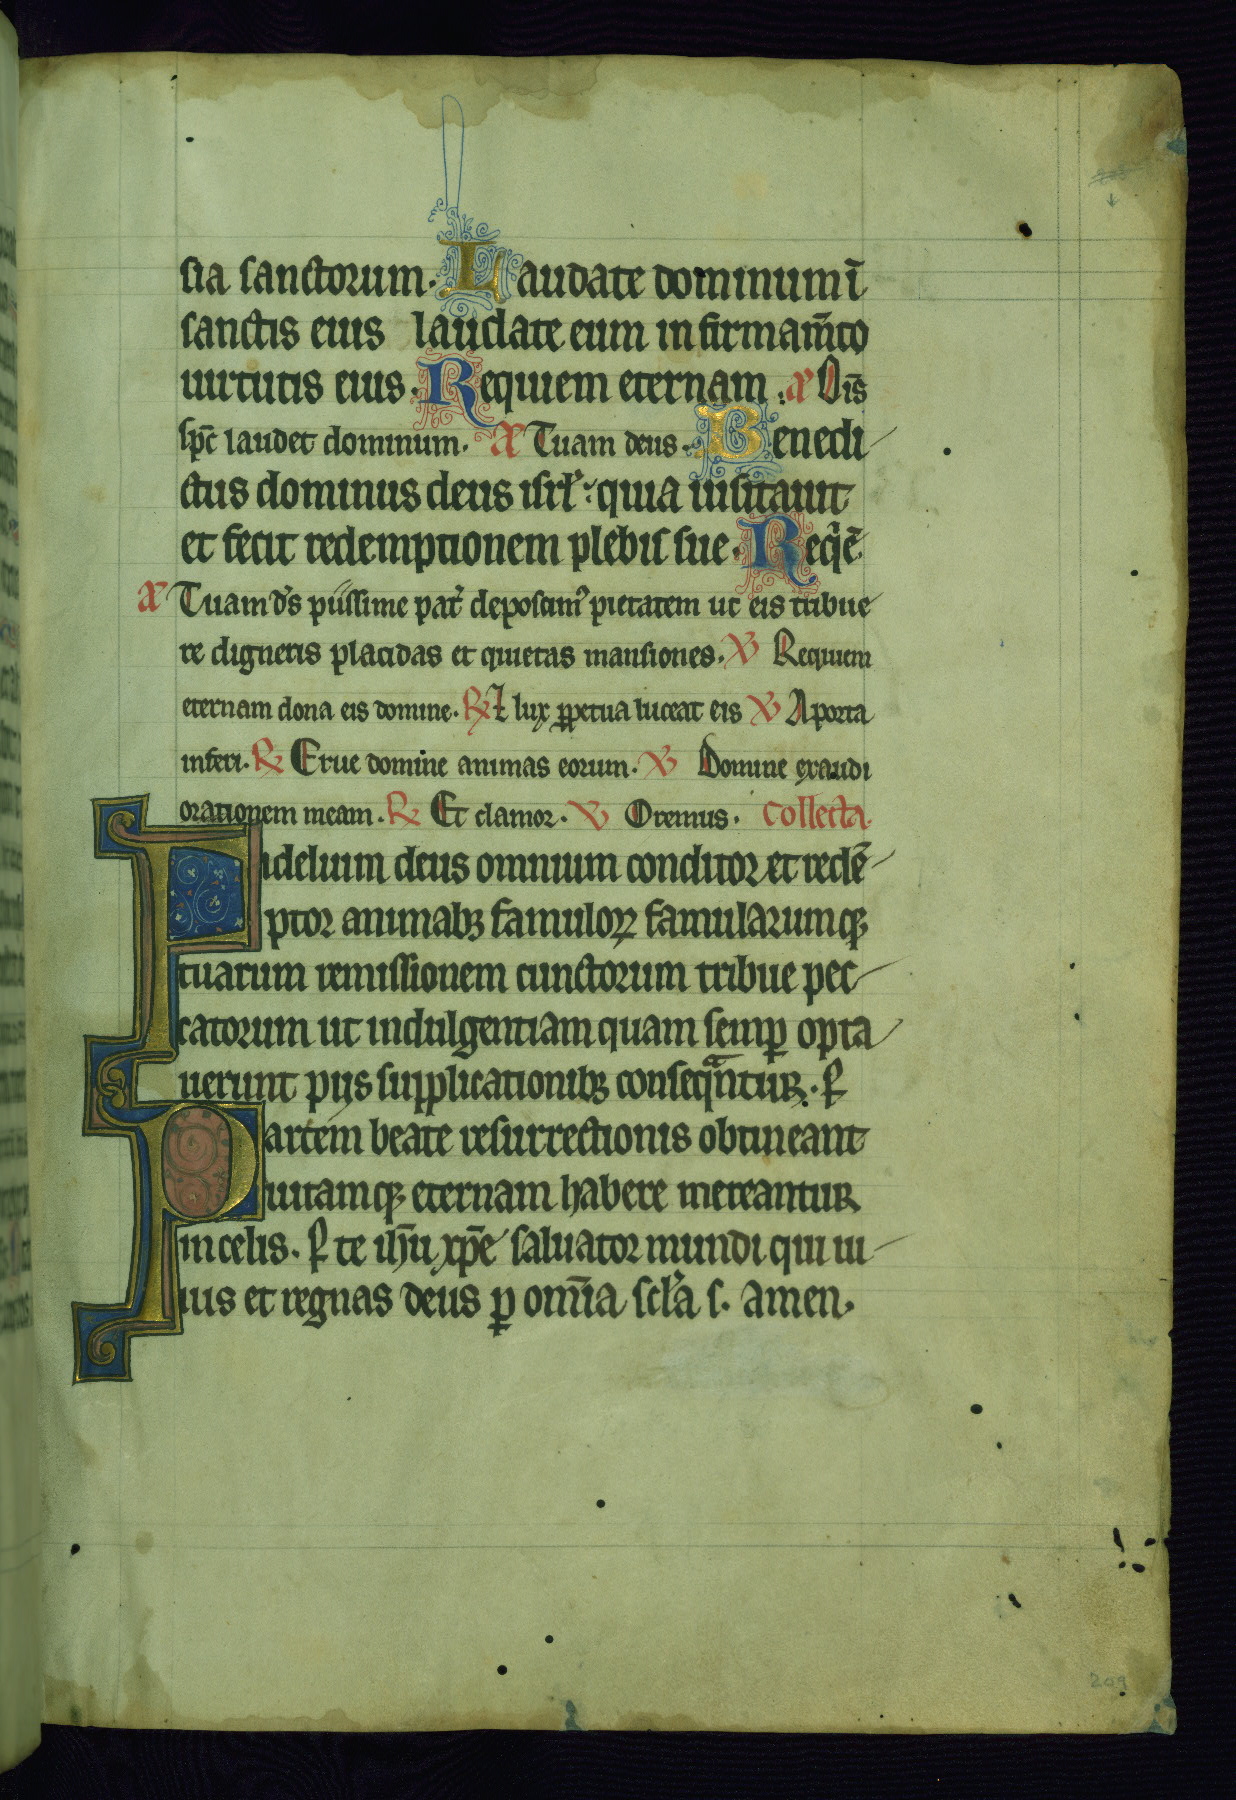 sia sanctorum. Laudate dominum ī
sanctis eius laudate eum in firmam̄to
uirtutis eius. Requiem eternam. A Oīs
sp̄c laudet dominum. A Tuam deus. Benedi
ctus dominus deus isrl̓: quia uisitauit
et fecit redemptionem plebis sue. Req̓ē
A Tuam ds̄ piissime pat̓ deposcim᷒ pietatem ut eis tribue
re digneris placidas et quietas mansiones. V Requiem
eternam dona eis domine. R Et lux ꝑpetua luceat eis V A porta
inferi. R Erue domine animas eorum. V Domine exaudi
orationem meam. R Et clamor. V Oremus. Collecta.
Fidelium deus omnium conditor et redē
ptor animabꝫ famuloꝝ famularumqꝫ
tuarum remissionem cunctorum tribue pec
catorum ut indulgentiam quam semꝑ opta
uerunt pijs supplicationibꝫ conseqᷓntur. P̱
Partem beate resurrectionis obtineant
uitamqꝫ eternam habere mereantur
in celis. P̱ te ih̄u xp̄e saluator mundi qui ui
uis et regnas deus ꝑ om̄ia scl̓a s. amen.
209